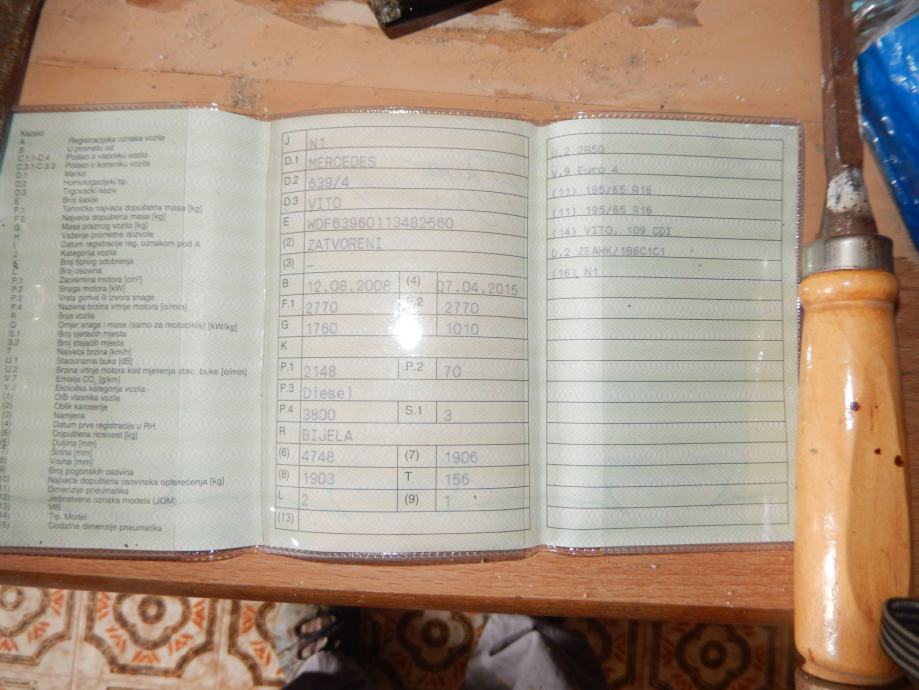 Kazalo
A Registracijska oznaka vozila
B U prometu od
C.1.1-C.4 Podaci o vlasniku vozila
C.3.1-C.3.3 Podaci o korisniku vozila
D.1 Marka
D.2 Homologacijski tip
D.3 Trgovački naziv
E Broj šasije
F.1 Tehnička najveća dopuštena masa [kg]
F.2 Najveća dopuštena masa [kg]
G Masa praznog vozila [kg]
H Važenje prometne dozvole
I Datum registracije reg. oznakom pod A
J Kategorija vozila
K Broj tipnog odobrenja
L Broj osovina
P.1 Zapremina motora [cm³]
P.2 Snaga motora [kW]
P.3 Vrsta goriva ili izvora snage
P.4 Nazivna brzina vrtnje motora [o/min]
R Boja vozila
Q Omjer snage i mase (samo za motocikle) [kW/kg]
S.1 Broj sjedećih mjesta
S.2 Broj stajaćih mjesta
T Najveća brzina [km/h]
U.1 Stacionarna buka [dB]
U.2 Brzina vrtnje motora kod mjerenja stac. buke [o/min]
V.7 Emisija CO₂ [g/km]
V.9 Ekološka kategorija vozila
(1) OIB vlasnika vozila
(2) Oblik karoserije
(3) Namjena
(4) Datum prve registracije u RH
(5) Dopuštena nosivost [kg]
(6) Duljina [mm]
(7) Širina [mm]
(8) Visina [mm]
(9) Broj pogonskih osovina
(10) Najveća dopuštena osovinska opterećenja [kg]
(11) Dimenzije pneumatika
(12) Jedinstvena oznaka modela (JOM)
(13) MB
(14) Tip, Model
(15) Dodatne dimenzije pneumatika
J N1
D.1 MERCEDES
D.2 639/4
D.3 VITO
E WDF63960113482560
(2) ZATVORENI
(3) –
B 12.08.2008 (4) 07.04.2015
F.1 2770 F.2 2770
G 1760 1010
K
P.1 2148 P.2 70
P.3 Diesel
P.4 3800 S.1 3
R BIJELA
(6) 4748 (7) 1906
(8) 1903 T 156
L 2 (9) 1
(13)
U.2 2850
V.9 Euro 4
(11) 195/65 R16
(11) 195/65 R16
(14) VITO, 109 CDI
D.2 ZEAHK/1B6C1C1
(16) N1